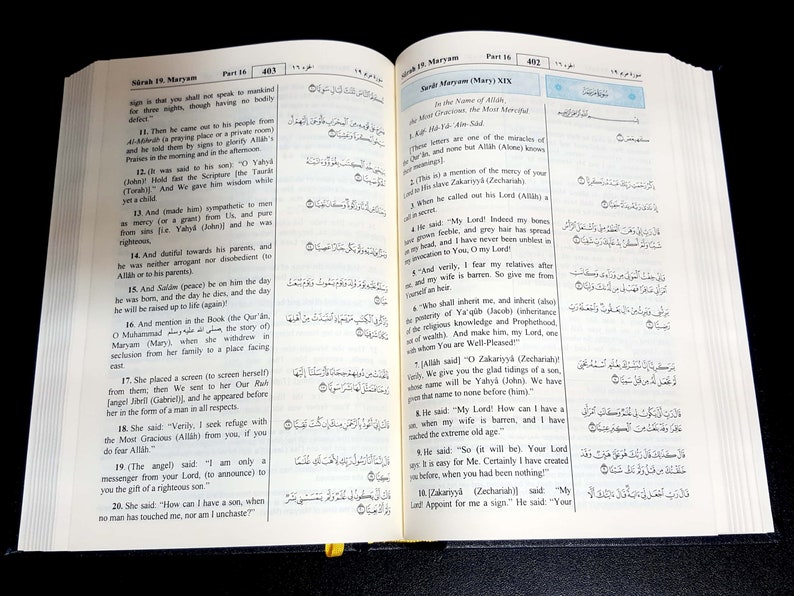 Sûrah 19. Maryam Part 16 402 الجزء ١٦ سورة مريم ١٩
Sûrat Maryam (Mary) XIX
سُورَةُ مَرْيَمَ
In the Name of Allâh,
the Most Gracious, the Most Merciful
بِسْمِ اللَّهِ الرَّحْمَٰنِ الرَّحِيمِ
1. Kâf- Hâ-Yâ-'Aîn-Sâd.
[These letters are one of the miracles of
the Qur'ân, and none but Allâh (Alone) knows
their meanings].
كهيعص ١
2. (This is) a mention of the mercy of your
Lord to His slave Zakariyyâ (Zechariah).
ذِكْرُ رَحْمَتِ رَبِّكَ عَبْدَهُ زَكَرِيَّا ٢
3. When he called out his Lord (Allâh) a
call in secret.
إِذْ نَادَىٰ رَبَّهُ نِدَاءً خَفِيًّا ٣
4. He said: "My Lord! Indeed my bones
have grown feeble, and grey hair has spread
on my head, and I have never been unblest in
my invocation to You, O my Lord!
قَالَ رَبِّ إِنِّي وَهَنَ الْعَظْمُ مِنِّي وَاشْتَعَلَ الرَّأْسُ
شَيْبًا وَلَمْ أَكُنْ بِدُعَائِكَ رَبِّ شَقِيًّا ٤
5. "And verily, I fear my relatives after
me, and my wife is barren. So give me from
Yourself an heir.
وَإِنِّي خِفْتُ الْمَوَالِيَ مِنْ وَرَاءِي وَكَانَتِ
امْرَأَتِي عَاقِرًا فَهَبْ لِي مِنْ لَدُنْكَ وَلِيًّا ٥
6. "Who shall inherit me, and inherit (also)
the posterity of Ya'qûb (Jacob) (inheritance
of the religious knowledge and Prophethood,
not of wealth). And make him, my Lord, one
with whom You are Well-Pleased!"
يَرِثُنِي وَيَرِثُ مِنْ ءَالِ يَعْقُوبَ وَاجْعَلْهُ رَبِّ
رَضِيًّا ٦
7. [Allâh said] "O Zakariyyâ (Zechariah)!
Verily, We give you the glad tidings of a son,
whose name will be Yahyâ (John). We have
given that name to none before (him)."
يَٰزَكَرِيَّا إِنَّا نُبَشِّرُكَ بِغُلَٰمٍ اسْمُهُ يَحْيَىٰ
لَمْ نَجْعَلْ لَهُ مِنْ قَبْلُ سَمِيًّا ٧
8. He said: "My Lord! How can I have a
son, when my wife is barren, and I have
reached the extreme old age."
قَالَ رَبِّ أَنَّىٰ يَكُونُ لِي غُلَٰمٌ وَكَانَتِ امْرَأَتِي
عَاقِرًا وَقَدْ بَلَغْتُ مِنَ الْكِبَرِ عِتِيًّا ٨
9. He said: "So (it will be). Your Lord
says: It is easy for Me. Certainly I have created
you before, when you had been nothing!"
قَالَ كَذَٰلِكَ قَالَ رَبُّكَ هُوَ عَلَيَّ هَيِّنٌ وَقَدْ
خَلَقْتُكَ مِنْ قَبْلُ وَلَمْ تَكُ شَيْئًا ٩
10. [Zakariyyâ (Zechariah)] said: "My
Lord! Appoint for me a sign." He said: "Your
قَالَ رَبِّ اجْعَلْ لِي ءَايَةً قَالَ ءَايَتُكَ أَلَّا
Sûrah 19. Maryam Part 16 403 الجزء ١٦ سورة مريم ١٩
sign is that you shall not speak to mankind
for three nights, though having no bodily
defect."
تُكَلِّمَ النَّاسَ ثَلَٰثَ لَيَالٍ سَوِيًّا ١٠
11. Then he came out to his people from
Al-Mihrâb (a praying place or a private room)
and he told them by signs to glorify Allâh's
Praises in the morning and in the afternoon.
فَخَرَجَ عَلَىٰ قَوْمِهِ مِنَ الْمِحْرَابِ فَأَوْحَىٰ إِلَيْهِمْ أَنْ
سَبِّحُوا بُكْرَةً وَعَشِيًّا ١١
12. (It was said to his son): "O Yahyâ
(John)! Hold fast the Scripture [the Taurât
(Torah)]." And We gave him wisdom while
yet a child.
يَٰيَحْيَىٰ خُذِ الْكِتَٰبَ بِقُوَّةٍ وَءَاتَيْنَٰهُ
الْحُكْمَ صَبِيًّا ١٢
13. And (made him) sympathetic to men
as mercy (or a grant) from Us, and pure
from sins [i.e. Yahyâ (John)] and he was
righteous,
وَحَنَانًا مِنْ لَدُنَّا وَزَكَوٰةً وَكَانَ تَقِيًّا ١٣
14. And dutiful towards his parents, and
he was neither arrogant nor disobedient (to
Allâh or to his parents).
وَبَرًّا بِوَٰلِدَيْهِ وَلَمْ يَكُنْ جَبَّارًا عَصِيًّا ١٤
15. And Salâm (peace) be on him the day
he was born, and the day he dies, and the day
he will be raised up to life (again)!
وَسَلَٰمٌ عَلَيْهِ يَوْمَ وُلِدَ وَيَوْمَ يَمُوتُ وَيَوْمَ يُبْعَثُ
حَيًّا ١٥
16. And mention in the Book (the Qur'ân,
O Muhammad صلى الله عليه وسلم, the story of)
Maryam (Mary), when she withdrew in
seclusion from her family to a place facing
east.
وَاذْكُرْ فِي الْكِتَٰبِ مَرْيَمَ إِذِ انْتَبَذَتْ مِنْ أَهْلِهَا
مَكَانًا شَرْقِيًّا ١٦
17. She placed a screen (to screen herself)
from them; then We sent to her Our Ruh
[angel Jibrîl (Gabriel)], and he appeared before
her in the form of a man in all respects.
فَاتَّخَذَتْ مِنْ دُونِهِمْ حِجَابًا فَأَرْسَلْنَا إِلَيْهَا
رُوحَنَا فَتَمَثَّلَ لَهَا بَشَرًا سَوِيًّا ١٧
18. She said: "Verily, I seek refuge with
the Most Gracious (Allâh) from you, if you
do fear Allâh."
قَالَتْ إِنِّي أَعُوذُ بِالرَّحْمَٰنِ مِنْكَ إِنْ كُنْتَ تَقِيًّا ١٨
19. (The angel) said: "I am only a
messenger from your Lord, (to announce) to
you the gift of a righteous son."
قَالَ إِنَّمَا أَنَا رَسُولُ رَبِّكِ لِأَهَبَ لَكِ غُلَٰمًا
زَكِيًّا ١٩
20. She said: "How can I have a son, when
no man has touched me, nor am I unchaste?"
قَالَتْ أَنَّىٰ يَكُونُ لِي غُلَٰمٌ وَلَمْ يَمْسَسْنِي بَشَرٌ
وَلَمْ أَكُ بَغِيًّا ٢٠